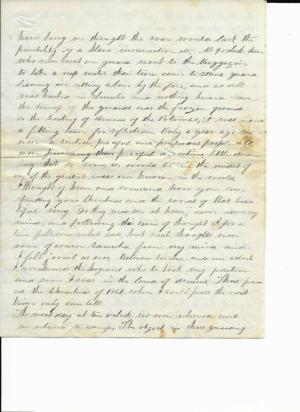 how long we thought the war would last the
possibility of a slave insurrection etc. At 9 oclock those
who were not on guard went to the
to take a nap until their turn came to stand guard
leaving me sitting alone by the fire, and as all
was hushed in slumber and nothing heard save
the tramp of the guards over the frozen ground
or the beating of drums of the Potomac, it was indeed
a fitting time for reflection. Only a year ago we
were a united, peaceful and prosperous people all
now
day that a year we would be in the midst of
one of the greatest wars ever known in the world
I thought of home and wondered how you were
spending your Christmas and the words of that beau-
tiful song Do they miss me at home, came into my
mind, and following the train of thought I felt a
little
some of course banished from my mind and
I felt jovial as ever. Between twelve and one oclock
I awakened the Sergeant who to took my position
and soon I was in the land of dreams. Thus pass-
ed the Christmas of 1861 where I will pass the next
time only can tell.
The next day at ten oclock we were relieved and
we returned to camp. The object in thus guarding